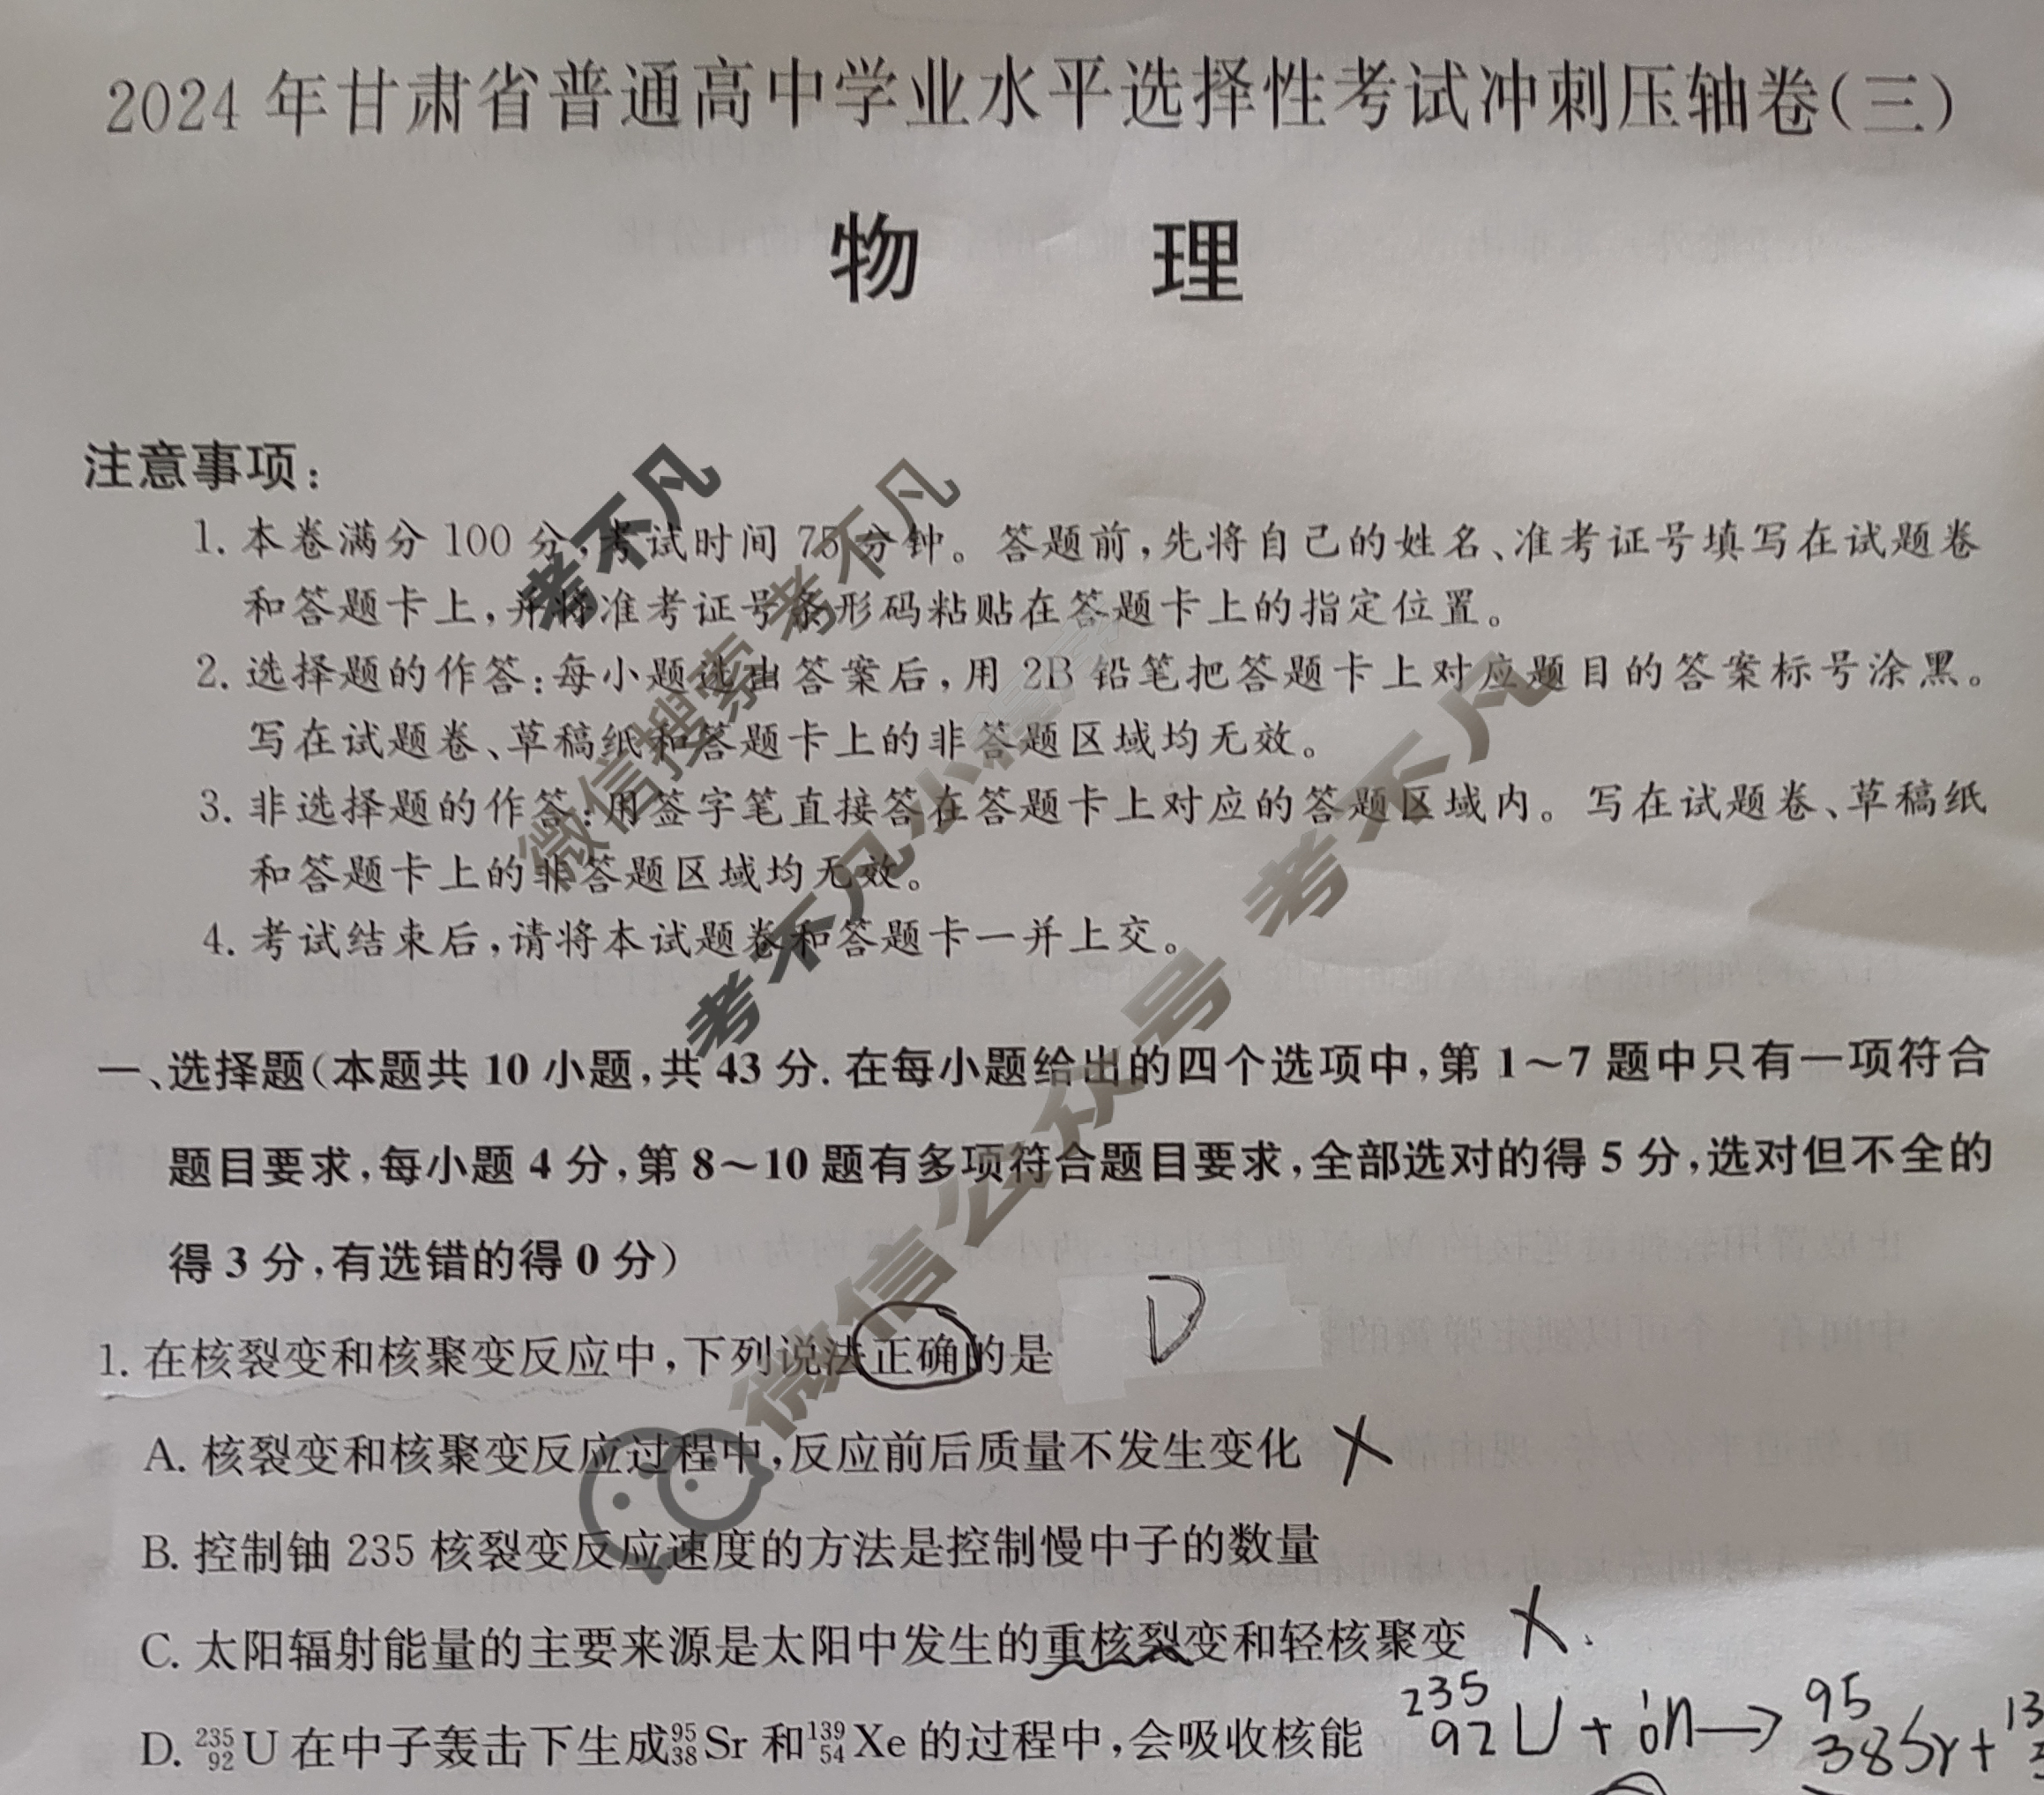 2024年甘肃省普通高中学业水平选择性考试冲刺压轴卷(三)
物 理
注意事项:
1. 本卷满分 100 分,考试时间 75 分钟。答题前,先将自己的姓名、准考证号填写在试题卷
和答题卡上,并将准考证号条形码粘贴在答题卡上的指定位置。
2. 选择题的作答:每小题选出答案后,用 2B 铅笔把答题卡上对应题目的答案标号涂黑。
写在试题卷、草稿纸和答题卡上的非答题区域均无效。
3. 非选择题的作答:用签字笔直接答在答题卡上对应的答题区域内。写在试题卷、草稿纸
和答题卡上的非答题区域均无效。
4. 考试结束后,请将本试题卷和答题卡一并上交。
考不凡
微信搜索考不凡
考不凡小程序
微信公众号 考不凡
一、选择题(本题共 10 小题,共 43 分. 在每小题给出的四个选项中,第 1~7 题中只有一项符合
题目要求,每小题 4 分,第 8~10 题有多项符合题目要求,全部选对的得 5 分,选对但不全的
得 3 分,有选错的得 0 分)
1. 在核裂变和核聚变反应中,下列说法正确的是 D
A. 核裂变和核聚变反应过程中,反应前后质量不发生变化 X
B. 控制铀 235 核裂变反应速度的方法是控制慢中子的数量
C. 太阳辐射能量的主要来源是太阳中发生的重核裂变和轻核聚变 X
D. ²³⁵₉₂U 在中子轰击下生成⁹⁵₃₈Sr 和¹³⁹₅₄Xe 的过程中,会吸收核能 ²³⁵₉₂U + ¹₀n → ⁹⁵₃₈Sr +